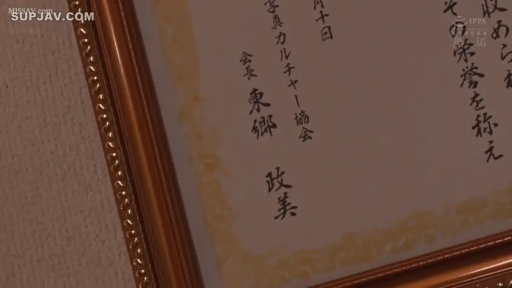 MISSAV.COM
SUPJAV.COM
IPPA
収められ
その栄誉を称え
月十回
写真カルチャー協会
会長 東郷 政美